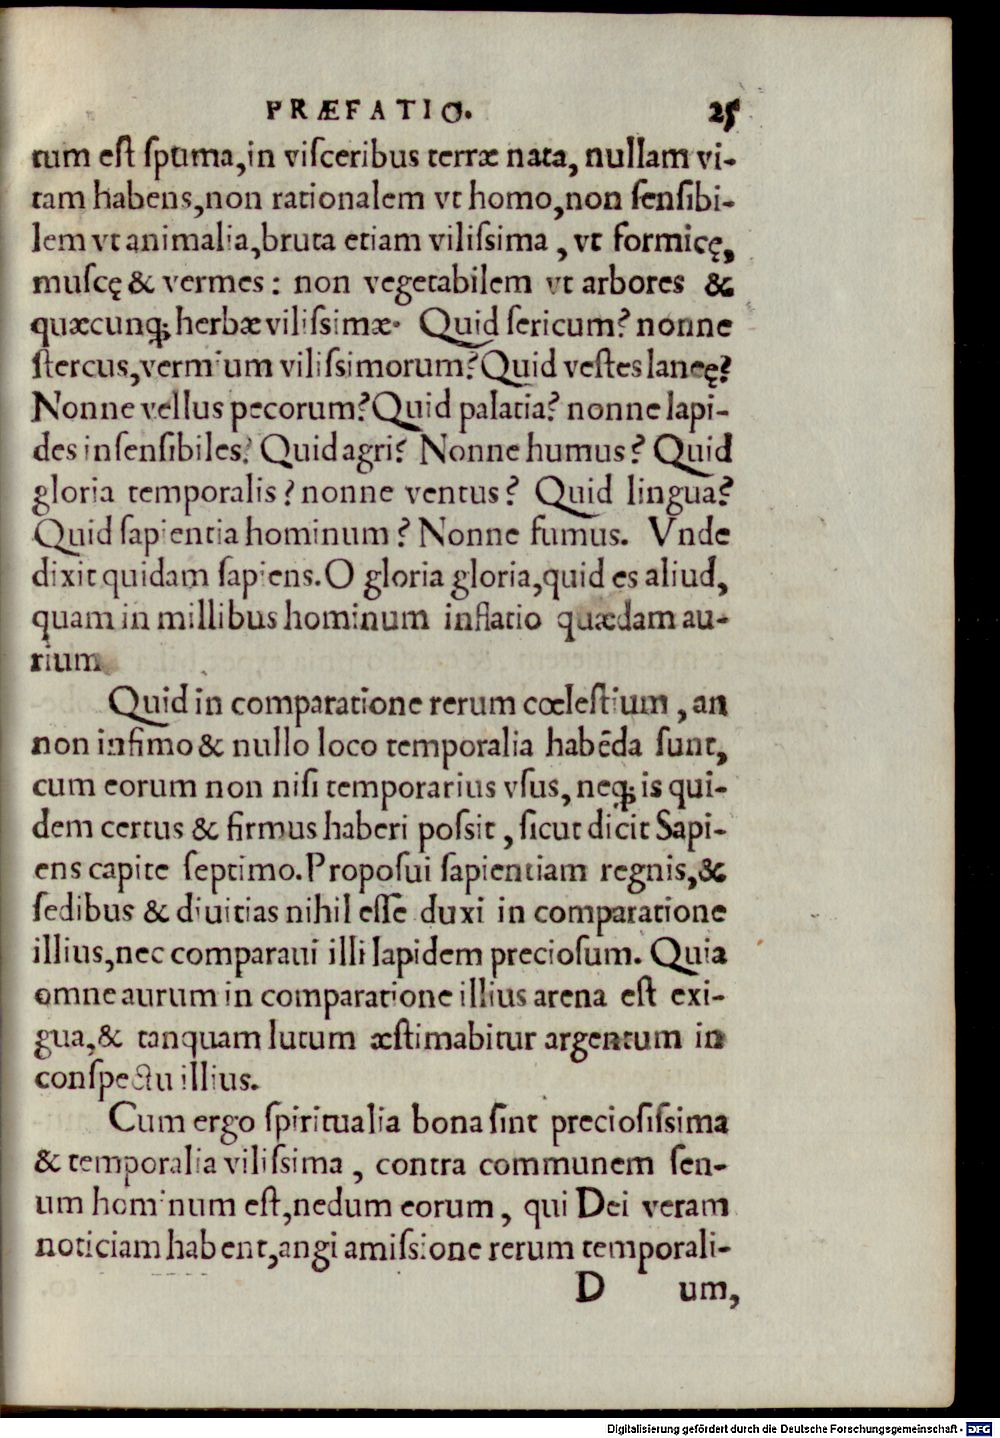 PRÆFATIO. 25
tum eſt ſpuma,in viſceribus terræ nata, nullam vi-
tam habens,non rationalem vt homo,non ſenſibi-
lem vt animalia,bruta etiam viliſsima, vt formicę,
muſcę & vermes: non vegetabilem vt arbores &
quæcunq; herbæ viliſsimæ. Quid ſericum? nonne
ſtercus,vermium viliſsimorum? Quid veſtes laneę?
Nonne vellus pecorum? Quid palatia? nonne lapi-
des inſenſibiles? Quid agri? Nonne humus? Quid
gloria temporalis? nonne ventus? Quid lingua?
Quid ſapientia hominum? Nonne fumus. Vnde
dixit quidam ſapiens. O gloria gloria,quid es aliud,
quam in millibus hominum inflatio quædam au-
rium.
Quid in comparatione rerum cœleſtium, an
non infimo & nullo loco temporalia habēda ſunt,
cum eorum non niſi temporarius vſus, neq; is qui-
dem certus & firmus haberi poſsit, ſicut dicit Sapi-
ens capite ſeptimo. Propoſui ſapientiam regnis,&
ſedibus & diuitias nihil eſſe duxi in comparatione
illius,nec comparaui illi lapidem precioſum. Quia
omne aurum in comparatione illius arena eſt exi-
gua,& tanquam lutum æſtimabitur argentum in
conſpectu illius.
Cum ergo ſpiritualia bona ſint precioſiſsima
& temporalia viliſsima, contra communem ſen-
um hominum eſt,nedum eorum, qui Dei veram
noticiam habent,angi amiſsione rerum temporali-
D um,
Digitalisierung gefördert durch die Deutsche Forschungsgemeinschaft - DFG